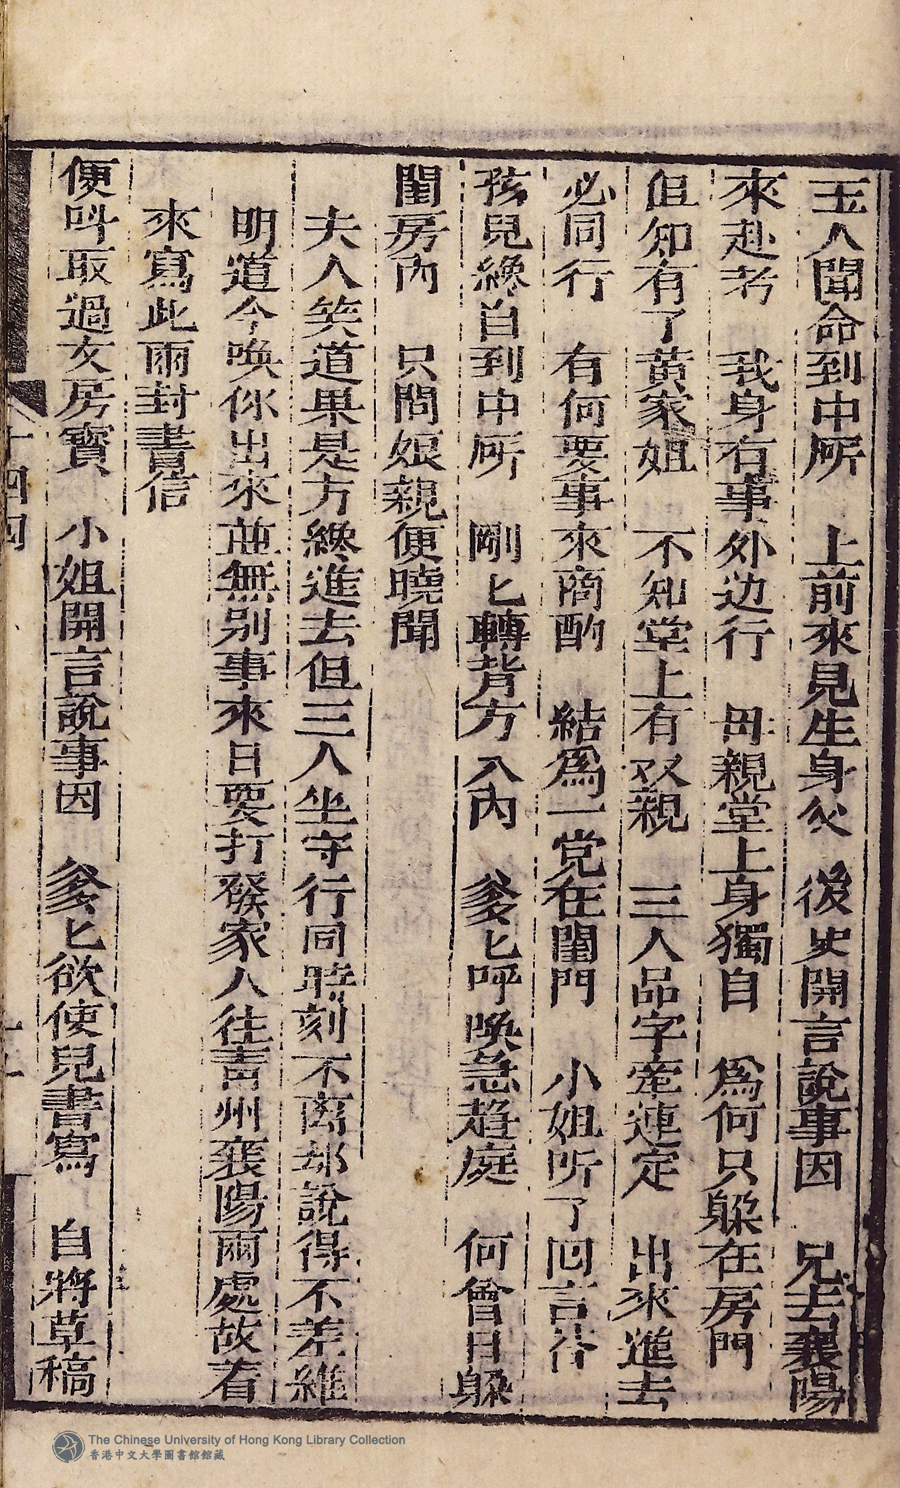 玉人聞命到中所　上前來見生身父　後史開言說事因　兄去襄陽
來赴考　我身有事外边行　母親堂上身獨自　爲何只躲在房門
但知有了黃家姐　不知堂上有双親　三人品字牽連定　出來進去
必同行　有何要事來商酌　結爲一党在閨門　小姐听了回言答
孩兒纔自到中所　剛匕轉背方入內　爹匕呼喚急趍庭　何曾日躲
閨房內　只問娘親便曉聞
夫人笑道果是方纔進去但三人坐守行同時刻不离却說得不差維
明道今喚你出來並無别事來日要打發家人往青州襄陽兩處故着
來寫此兩封書信
便呌取過文房寳　小姐開言說事因　爹匕欲使兒書寫　自將草稿
十四
The Chinese University of Hong Kong Library Collection
香港中文大學圖書館館藏